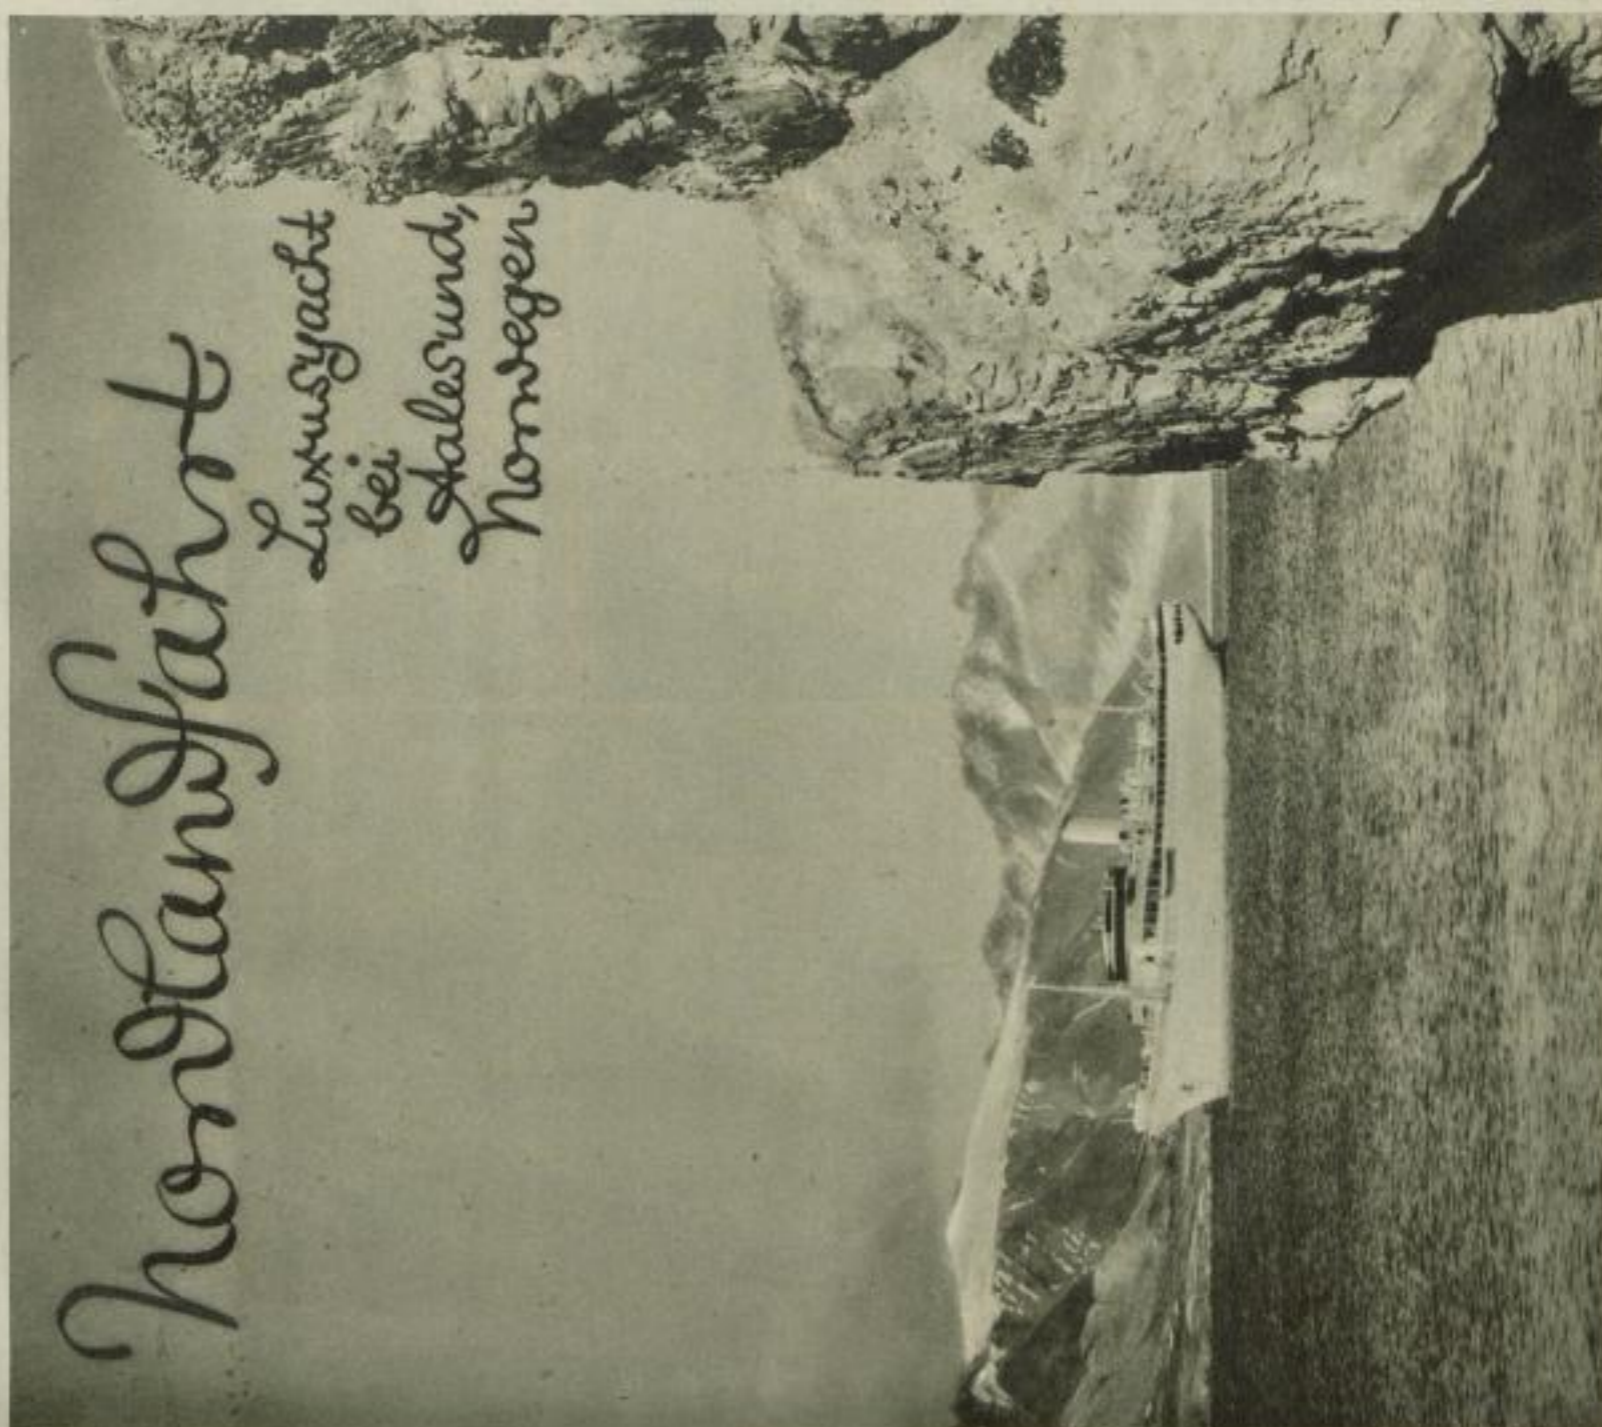 Nordlandfahrt
Luxusyacht
bei
Aalesund,
Norwegen